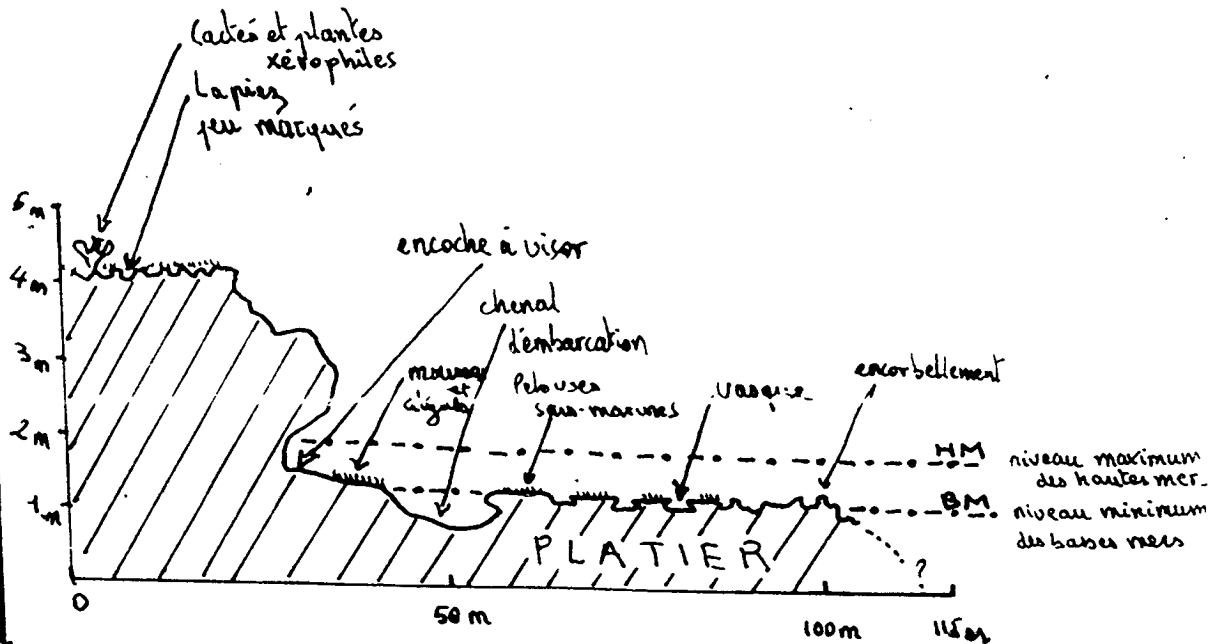 Cactés et plantes
xérophiles
Lapiez
peu marqués
5 m
4 m
3 m
2 m
1 m
encoche à visor
chenal
d'embarcation
mousses
et
Pelouses
sous-marines
vasque
encorbellement
HM
niveau maximum
des hautes mer
BM
niveau minimum
des basses mers
PLATIER
?
0
50 m
100 m
115 m